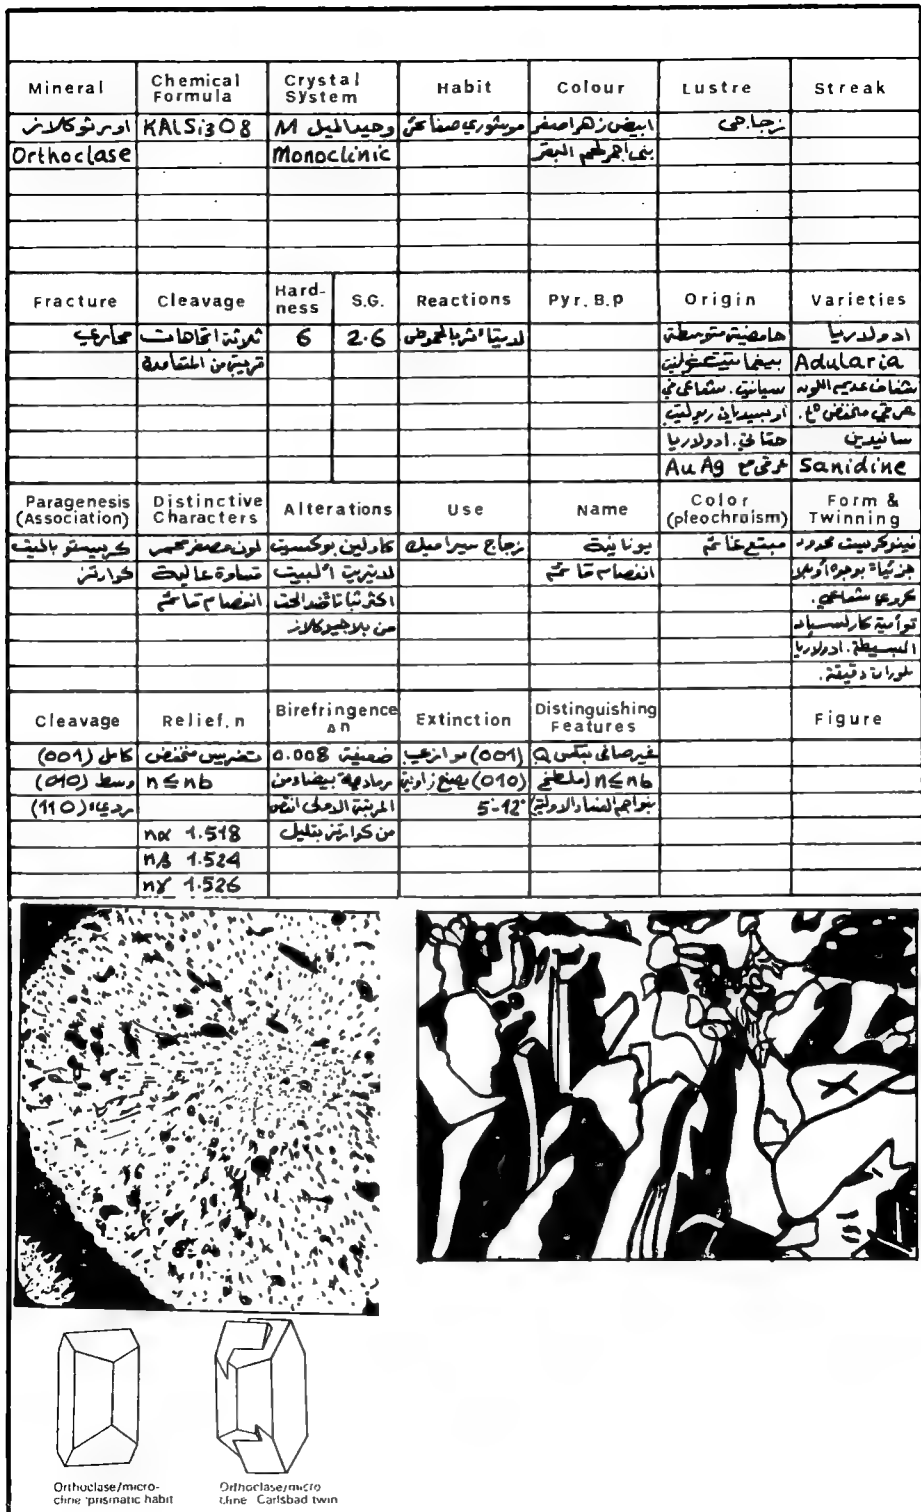 Mineral Chemical Formula Crystal System Habit Colour Lustre Streak
اورثوكلاز KAlSi3O8 وحيد الميل M موشوري صفائحي ابيض زهر اصفر زجاجي
Orthoclase Monoclinic بني احمر لحم البقر
Fracture Cleavage Hardness S.G. Reactions Pyr. B.p Origin Varieties
محاري ثلاثة اتجاهات 6 2.6 لا يتأثر بالحموض حامضية متوسطة ادولاريا
قريبة من المتعامدة Adularia
شفاف عديم اللون
سيانيت. شعاعي في
سانيدين
ادولاريا
عرقي مع Au Ag Sanidine
Paragenesis (Association) Distinctive Characters Alterations Use Name Color (pleochroism) Form & Twinning
كريستوبالیت لون مصفر محمر كاولين بوكسيت زجاج سيراميك يونانية
كوارتز قساوة عالية لاتيريت ألبيت انفصام قائم
انفصام قائم اكثر ثباتا ضد الحت
من بلاجيوكلاز كروي شعاعي.
توأمية كارلسباد
البسيطة. ادولاريا
بلورات دقيقة.
Cleavage Relief, n Birefringence Δn Extinction Distinguishing Features Figure
كامل (001) تضريس منخفض ضعيفة 0.008 (001) موازي غير صافي بعكس Q
وسط (010) n≤nb رمادية بيضاء من (010) يصنع زاوية n≤nb
رديء (110) المرتبة الاولى 5-12°
nα 1.518 من كوارتز بقليل
nβ 1.524
nγ 1.526
Orthoclase/micro-
cline prismatic habit
Orthoclase/micro
cline Carlsbad twin